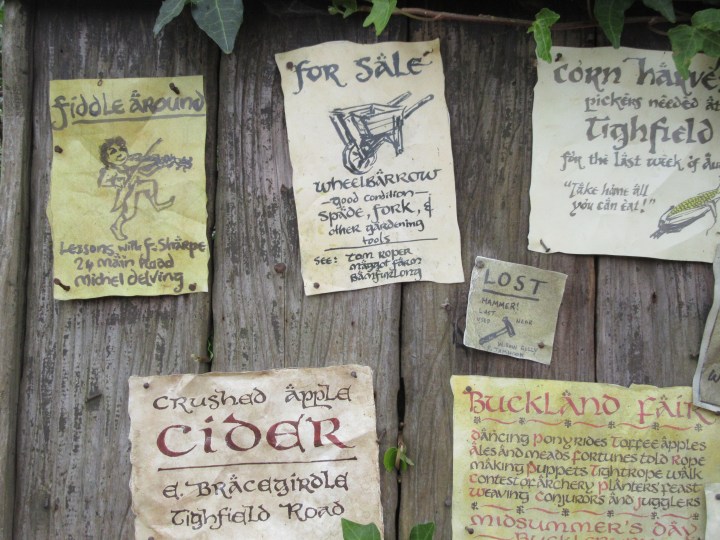 Fiddle Around
Lessons with F. Sharpe
24 Main Road
Michel Delving
For Sale
Wheelbarrow
-good condition-
Spade, Fork, &
other gardening
tools
See: Tom Roper
Maggot Farm
Bamfurlong
Corn Harve
pickers needed a
Tighfield
for the last week of Au
"Take home all
you can eat!"
LOST
HAMMER!
LAST
USED NEAR
Crushed Apple
Cider
E. Bracegirdle
Tighfield Road
Buckland Fair
Dancing Pony Rides Toffee Apples
Ales and Meads Fortunes Told Rope
Making Puppets Tightrope Walk
Contest of Archery Planters' Feast
Weaving Conjurors and Jugglers
Midsummer's Day